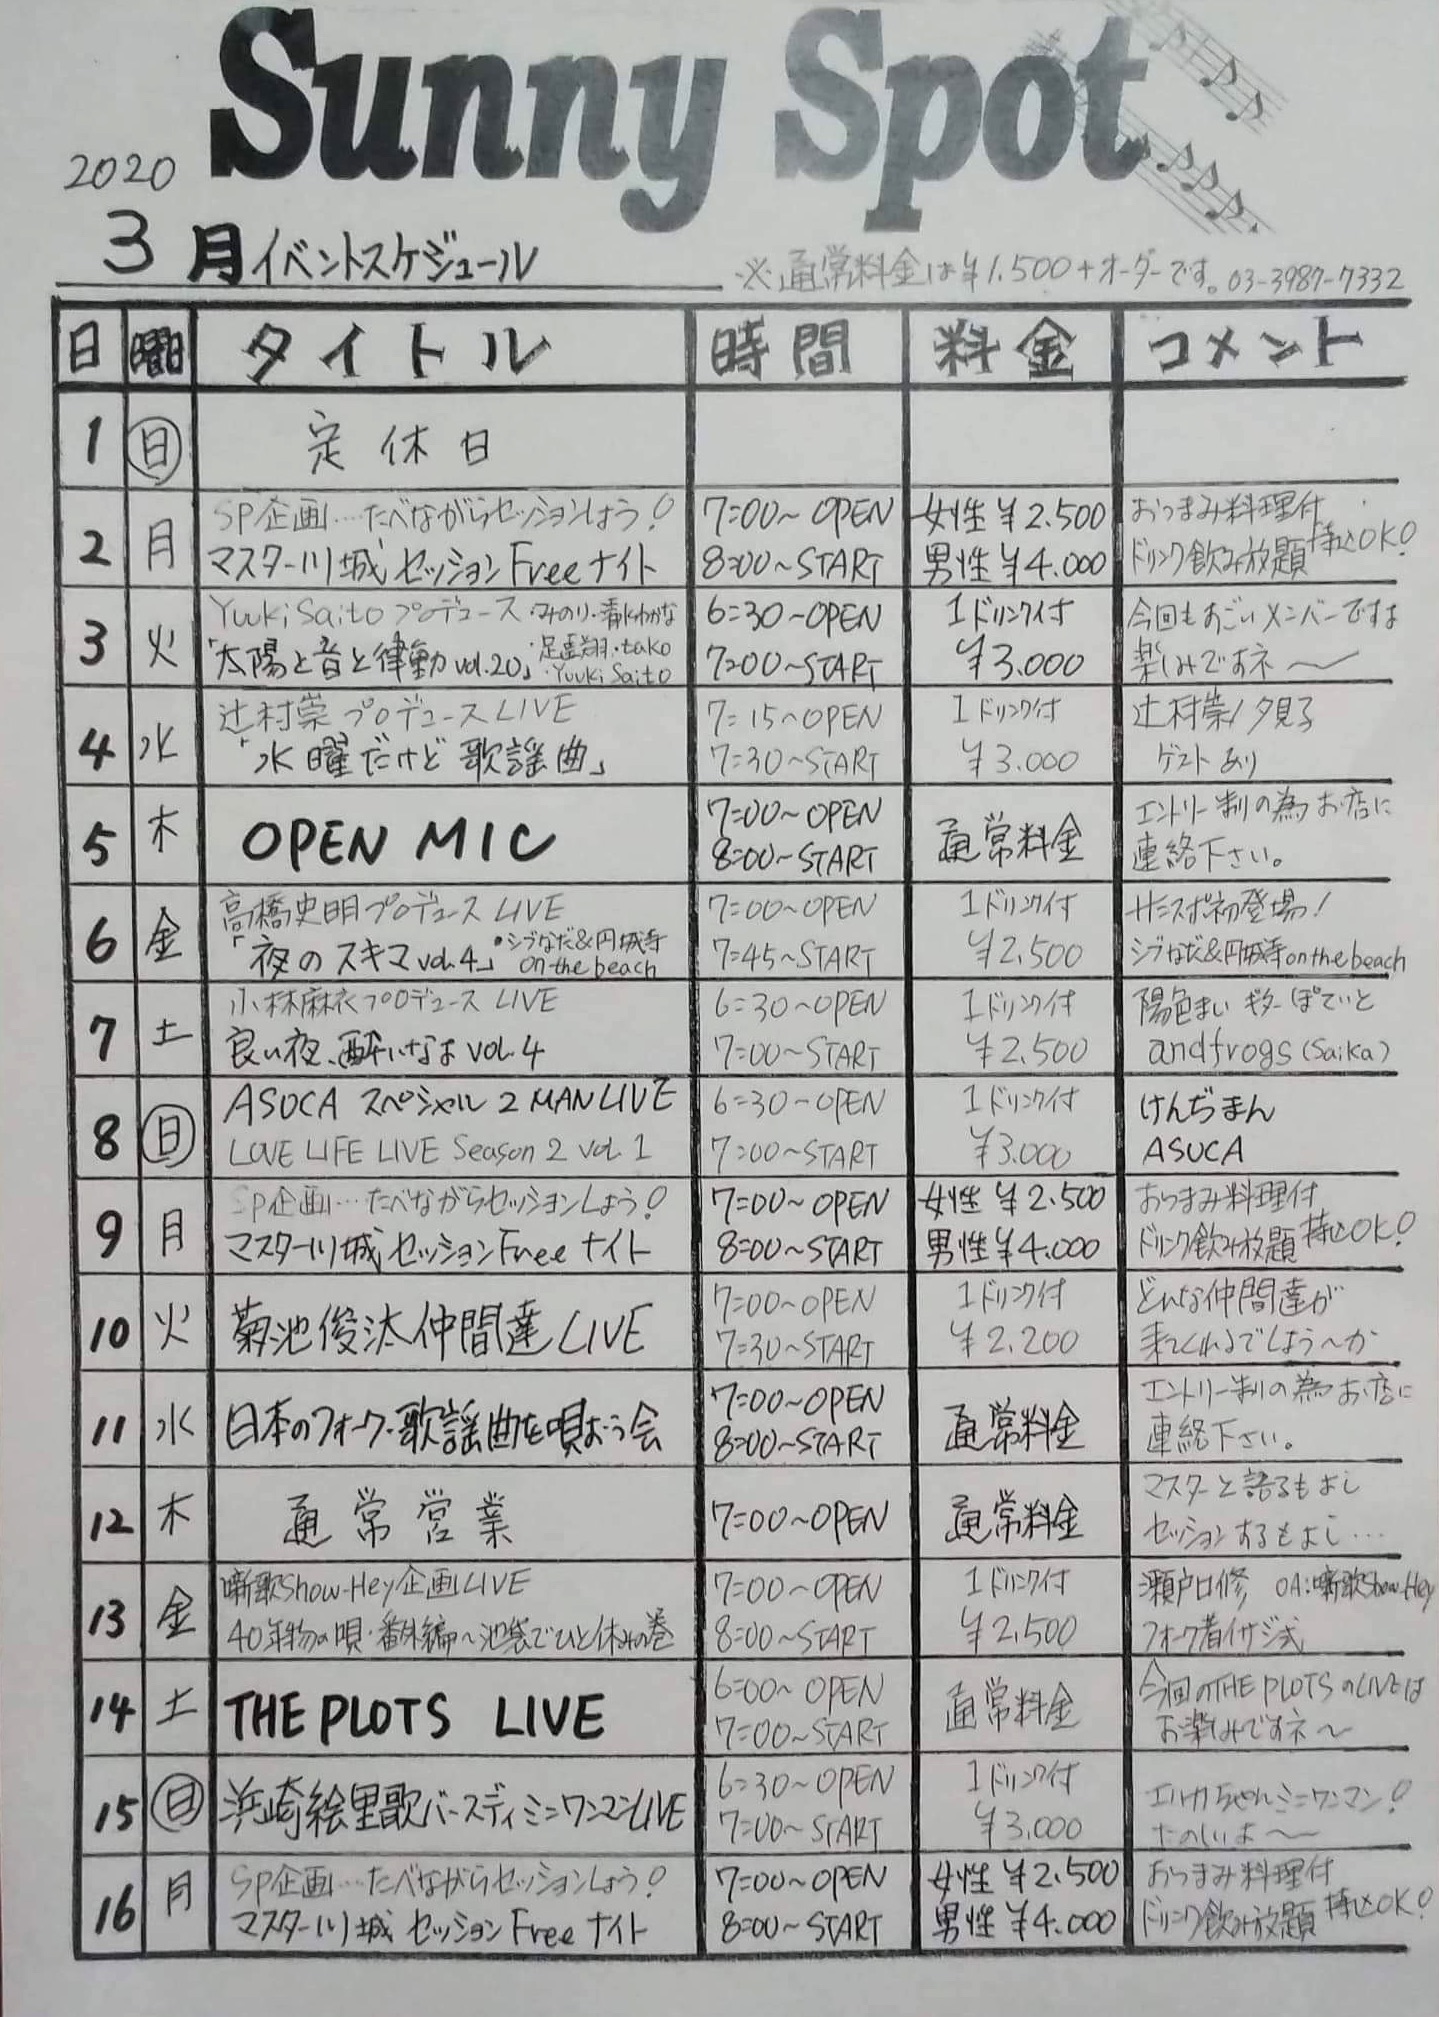 Sunny Spot
2020
3月イベントスケジュール
※通常料金は¥1.500+オーダーです。03-3987-7332
日 曜 タイトル 時間 料金 コメント
1 日 定休日
2 月 SP企画…たべながらセッションしよう!
マスター川城 セッションFreeナイト
7:00~OPEN
8:00~START
女性¥2.500
男性¥4.000
おつまみ料理付
ドリンク飲み放題 持込OK!
3 火 Yuuki Saito プロデュース ・みのり・清水わかな
「太陽と音と律動 vol.20」 ・足立翔・tako
・Yuuki Saito
6:30~OPEN
7:00~START
1ドリンク付
¥3.000
今回もすごいメンバーですよ
楽しみですネ〜
4 水 辻村崇プロデュースLIVE
「水曜だけど歌謡曲」
7:15~OPEN
7:30~START
1ドリンク付
¥3.000
辻村崇/夕見子
ゲストあり
5 木 OPEN MIC
7:00~OPEN
8:00~START
通常料金
エントリー制の為お店に
連絡下さい。
6 金 高橋史明プロデュース LIVE
「夜のスキマ vol.4」 ・シブなだ&円城寺
on the beach
7:00~OPEN
7:45~START
1ドリンク付
¥2,500
サニスポ初登場!
シブなだ&円城寺 on the beach
7 土 小林麻衣プロデュース LIVE
良い夜、酔いなよ VOL.4
6:30~OPEN
7:00~START
1ドリンク付
¥2,500
陽色まい ギターぽていと
andfrogs (Saika)
8 日 ASUCA スペシャル 2 MAN LIVE
LOVE LIFE LIVE Season 2 vol. 1
6:30~OPEN
7:00~START
1ドリンク付
¥3.000
けんぢまん
ASUCA
9 月 SP企画…たべながらセッションしよう!
マスター川城 セッションFreeナイト
7:00~OPEN
8:00~START
女性¥2.500
男性¥4.000
おつまみ料理付
ドリンク飲み放題 持込OK!
10 火 菊池俊汰仲間達LIVE
7:00~OPEN
7:30~START
1ドリンク付
¥2,200
どんな仲間達が
来てくれるでしょう〜か
11 水 日本のフォーク・歌謡曲を唄おう会
7:00~OPEN
8:00~START
通常料金
エントリー制の為お店に
連絡下さい。
12 木 通常営業
7:00~OPEN
通常料金
マスターと語るもよし
セッションするもよし…
13 金 噺歌Show-Hey企画LIVE
40年物の唄・番外編~池袋でひと休みの巻
7:00~OPEN
8:00~START
1ドリンク付
¥2,500
瀬戸口修 OA:噺歌Show-Hey
フォーク者イサジ式
14 土 THE PLOTS LIVE
6:00~OPEN
7:00~START
通常料金
今回のTHE PLOTSのLIVEは
お楽しみですネ~
15 日 浜崎絵里歌バースディミニワンマンLIVE
6:30~OPEN
7:00~START
1ドリンク付
¥3.000
エリカちゃんミニワンマン!
たのしいよ〜
16 月 SP企画…たべながらセッションしよう!
マスター川城 セッションFreeナイト
7:00~OPEN
8:00~START
女性¥2.500
男性¥4.000
おつまみ料理付
ドリンク飲み放題 持込OK!